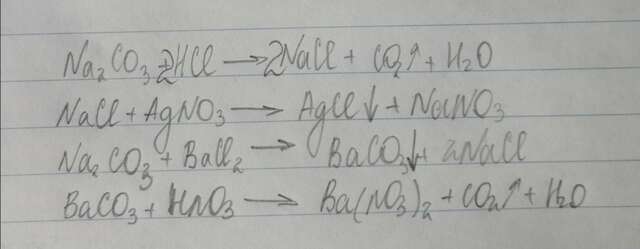 Na₂CO₃+2HCl → 2NaCl + CO₂↑ + H₂O
NaCl + AgNO₃ → AgCl↓ + NaNO₃
Na₂CO₃ + BaCl₂ → BaCO₃↓ + 2NaCl
BaCO₃ + HNO₃ → Ba(NO₃)₂ + CO₂↑ + H₂O